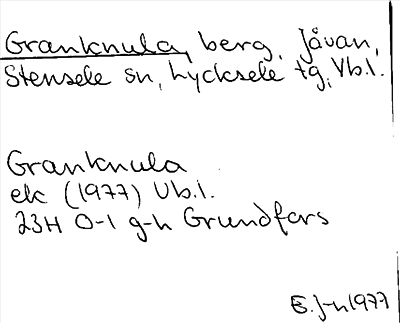 Granknula, berg, Jåvan,
Stensele sn, Lycksele tg, Vb.l.
Granknula
ek (1977) Vb.l.
23H 0-1 g-h Grundfors
E. J-n 1977